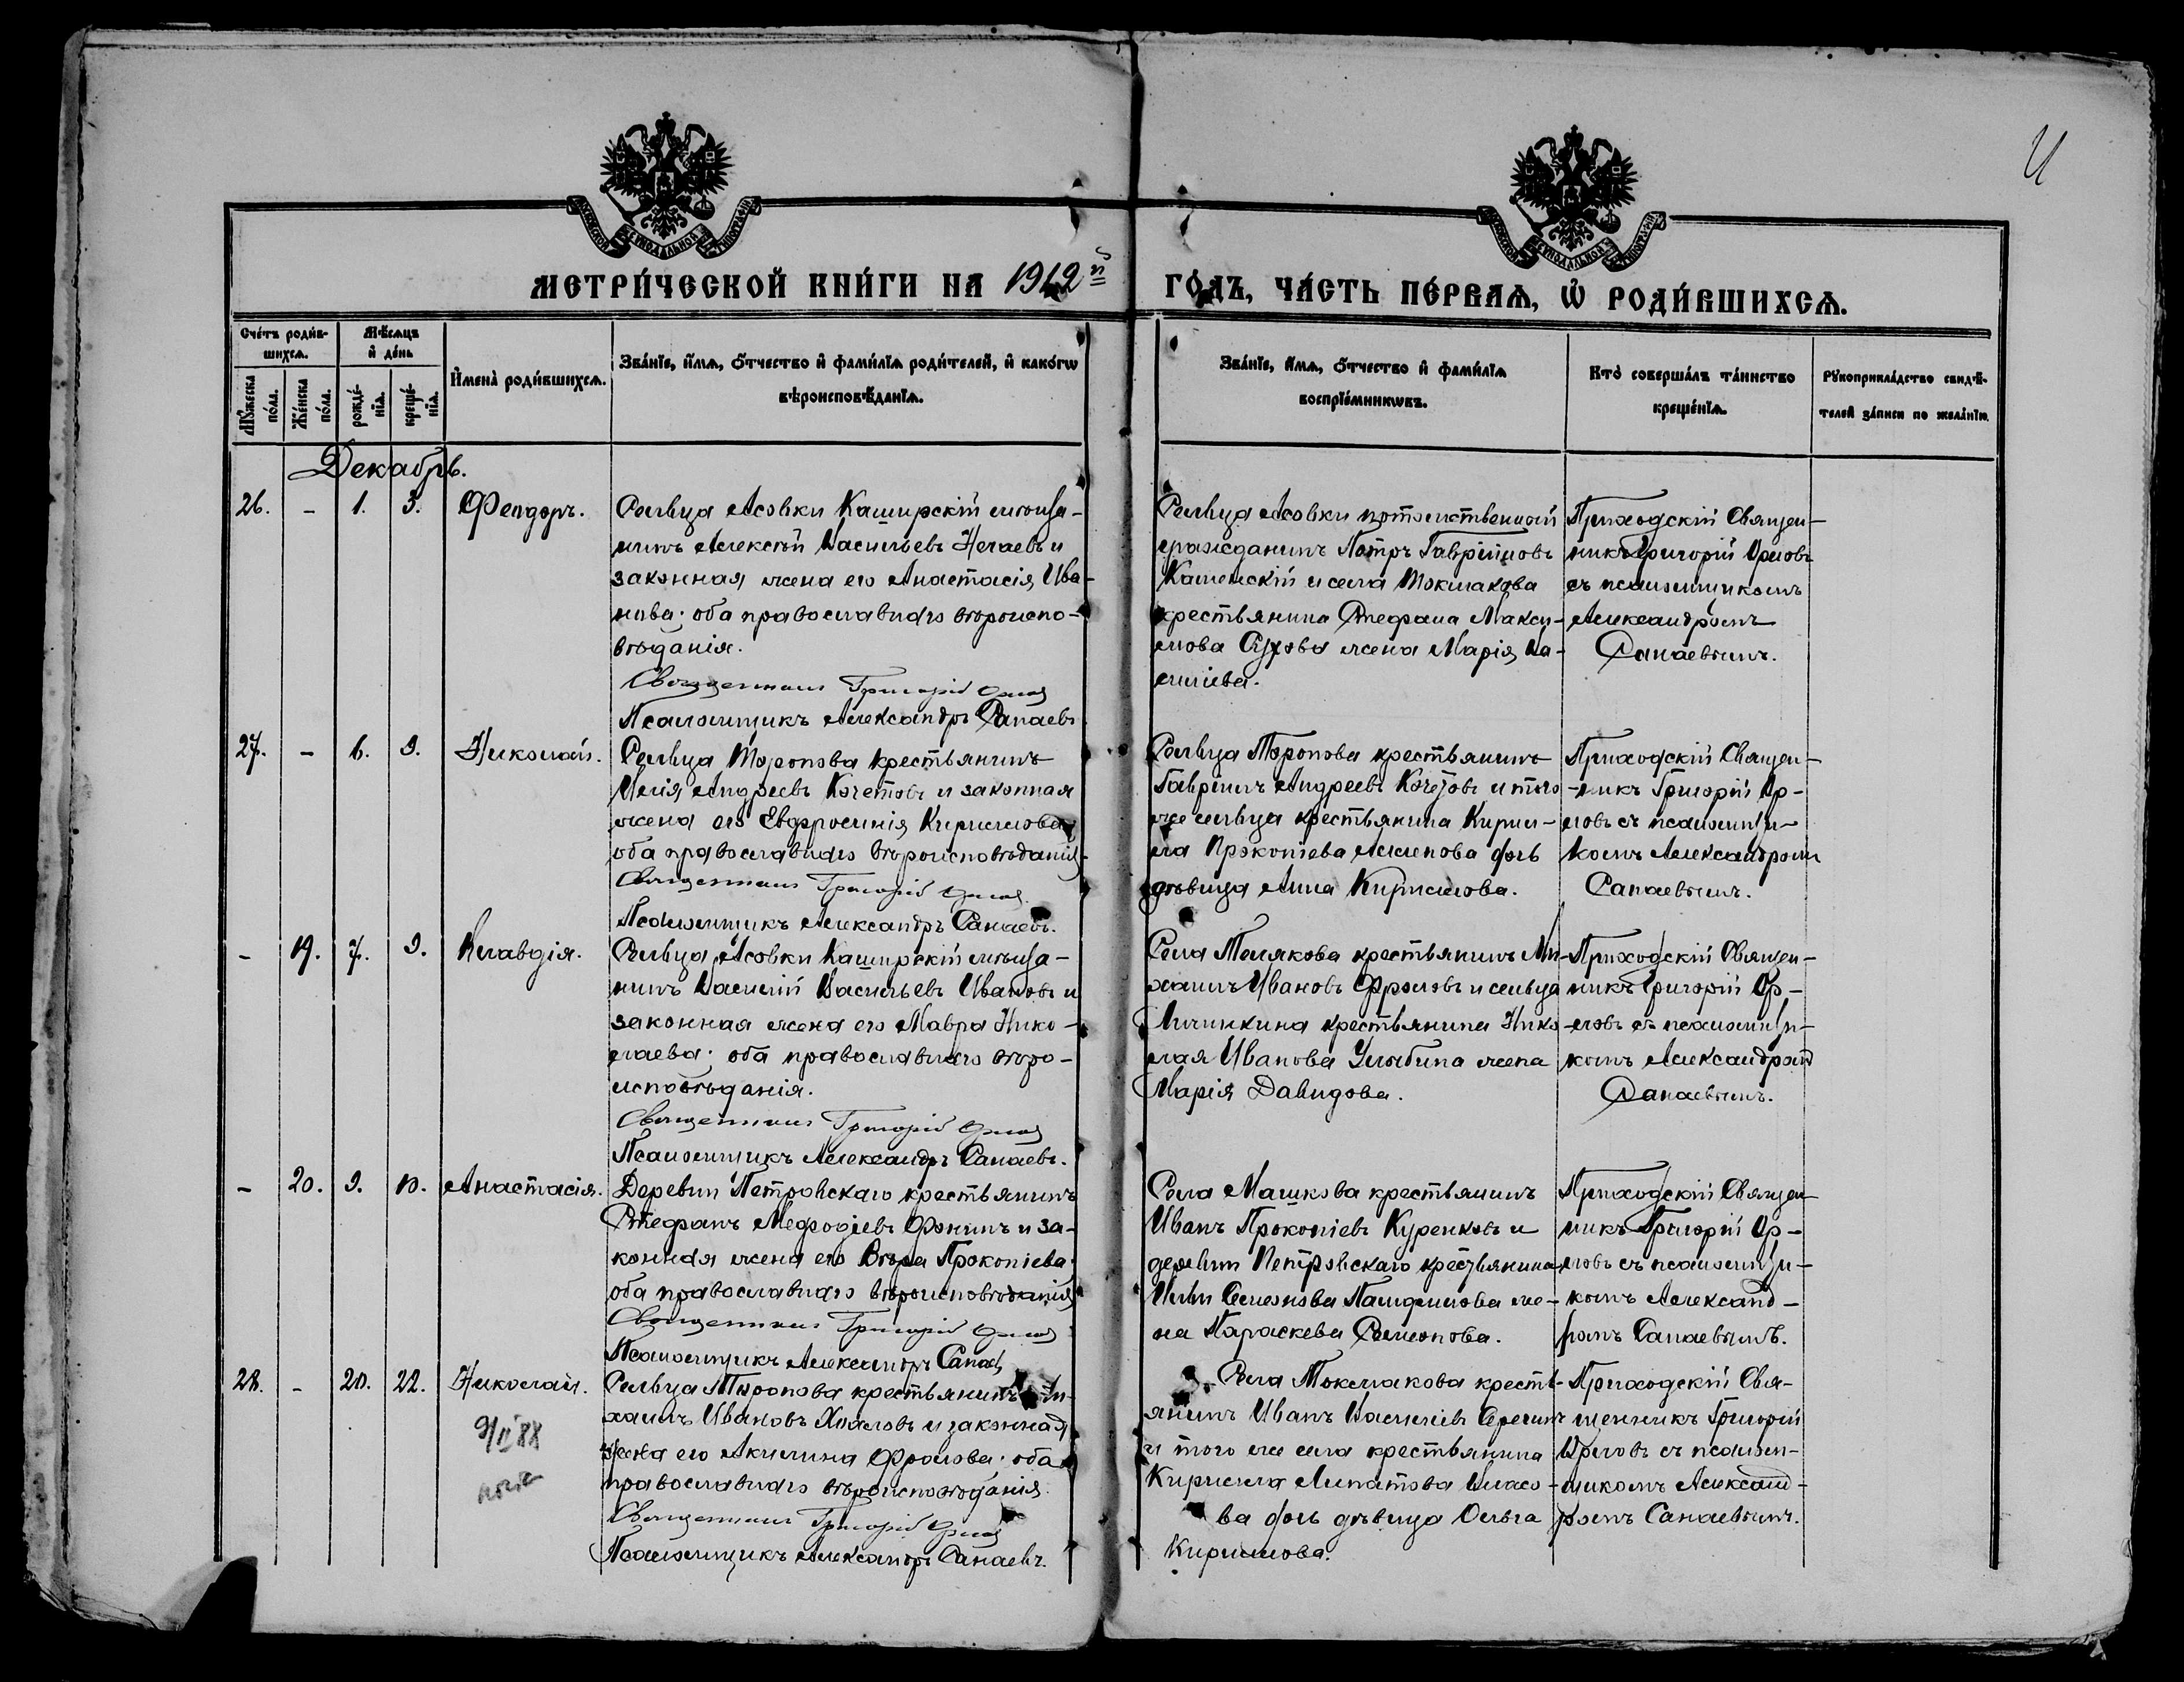 МОСКОВСКОЙ СѴНОДАЛЬНОЙ ТИПОГРАФІИ
МОСКОВСКОЙ СѴНОДАЛЬНОЙ ТИПОГРАФІИ
МЕТРИ́ЧЕСКОЙ КНИ́ГИ НА 1912й
ГО́ДЪ, ЧА́СТЬ ПЕ́РВАѦ, Ѿ РОДИ́ВШИХСѦ.
Сче́тъ роди́в-
шихсѧ.
Мѣ́сѧцъ
и҆ де́нь
И҆мена̀ роди́вшихсѧ.
Зва́нїе, и҆́мѧ, ѻ҆́тчество и҆ фами́лїѧ роди́телей, и҆ како́гѡ
вѣроисповѣ́данїѧ.
Мꙋ́жеска
по́ла.
Же́нска
по́ла.
рожде́-
нїѧ.
креще́-
нїѧ.
Зва́нїе, и҆́мѧ, ѻ҆́тчество и҆ фами́лїѧ
воспрїе́мникѡвъ.
Кто̀ соверша́лъ та́инство
креще́нїѧ.
Рꙋкоприкла́дство свидѣ́-
телей за́писи по жела́нїю.
Декабрь.
26. - 1. 3. Феодоръ.
Сельца Асовки Каширскій мѣща-
нинъ Алексѣй Васильевъ Нечаевъ и
законная жена его Анастасія Ива-
нова; оба православнаго вѣроиспо-
вѣданія.
Священникъ Григорій Орловъ
Псаломщикъ Александръ Санаевъ
Сельца Асовки потомственный
гражданинъ Петръ Гавріиловъ
Каменскій и села Токмакова
крестьянина Стефана Макси-
мова Сухова жена Марія Ва-
сильева.
Приходскій Священ-
никъ Григорій Орловъ
съ псаломщикомъ
Александромъ
Санаевымъ.
27. - 6. 9. Николай.
Сельца Торопова крестьянинъ
Илія Андреевъ Кочетовъ и законная
жена его Евфросинія Кириллова
оба православнаго вѣроисповѣданія.
Священникъ Григорій Орловъ
Псаломщикъ Александръ Санаевъ.
Сельца Торопова крестьянинъ
Гавріилъ Андреевъ Кочетовъ и того
же сельца крестьянина Кирил-
ла Прокопіева дочь
дѣвица Анна Кириллова.
Приходскій Священ-
никъ Григорій Ор-
ловъ съ псаломщи-
комъ Александромъ
Санаевымъ.
- 19. 7. 9. Клавдія.
Сельца Асовки Каширскій мѣща-
нинъ Василій Васильевъ Ивановъ и
законная жена его Мавра Нико-
лаева; оба православнаго вѣро-
исповѣданія.
Священникъ Григорій Орловъ
Псаломщикъ Александръ Санаевъ.
Села Телякова крестьянинъ Ми-
хаилъ Ивановъ Фроловъ и сельца
Личинкина крестьянина Нико-
лая Иванова Улыбина жена
Марія Давидова.
Приходскій Священ-
никъ Григорій Ор-
ловъ съ псаломщи-
комъ Александромъ
Санаевымъ.
- 20. 9. 10. Анастасія.
Деревни Петровскаго крестьянинъ
Стефанъ Мефодіевъ Фонинъ и за-
конная жена его Вѣра Прокопіева
оба православнаго вѣроисповѣданія
Священникъ Григорій Орловъ
Псаломщикъ Александръ Санаевъ
Села Машкова крестьянинъ
Иванъ Прокопіевъ Куренковъ и
деревни Петровскаго крестьянина
Иліи Семенова Панфилова же-
на Параскева Симеонова.
Приходскій Священ-
никъ Григорій Ор-
ловъ съ псаломщи-
комъ Александ-
ромъ Санаевымъ.
28. - 20. 22. Николай.
9/II 88
Сельца Торопова крестьянинъ Ми-
хаилъ Ивановъ и законная
жена его Акилина Фролова; оба
православнаго вѣроисповѣданія.
Священникъ Григорій Орловъ
Псаломщикъ Александръ Санаевъ.
Села Токмакова кресть-
янинъ Иванъ Василіевъ Серегинъ
и того же села крестьянина
Кирилла Липатова Власо-
ва дочь дѣвица Ольга
Кириллова.
Приходскій Свя-
щенникъ Григорій
Орловъ съ псалом-
щикомъ Александ-
ромъ Санаевымъ.